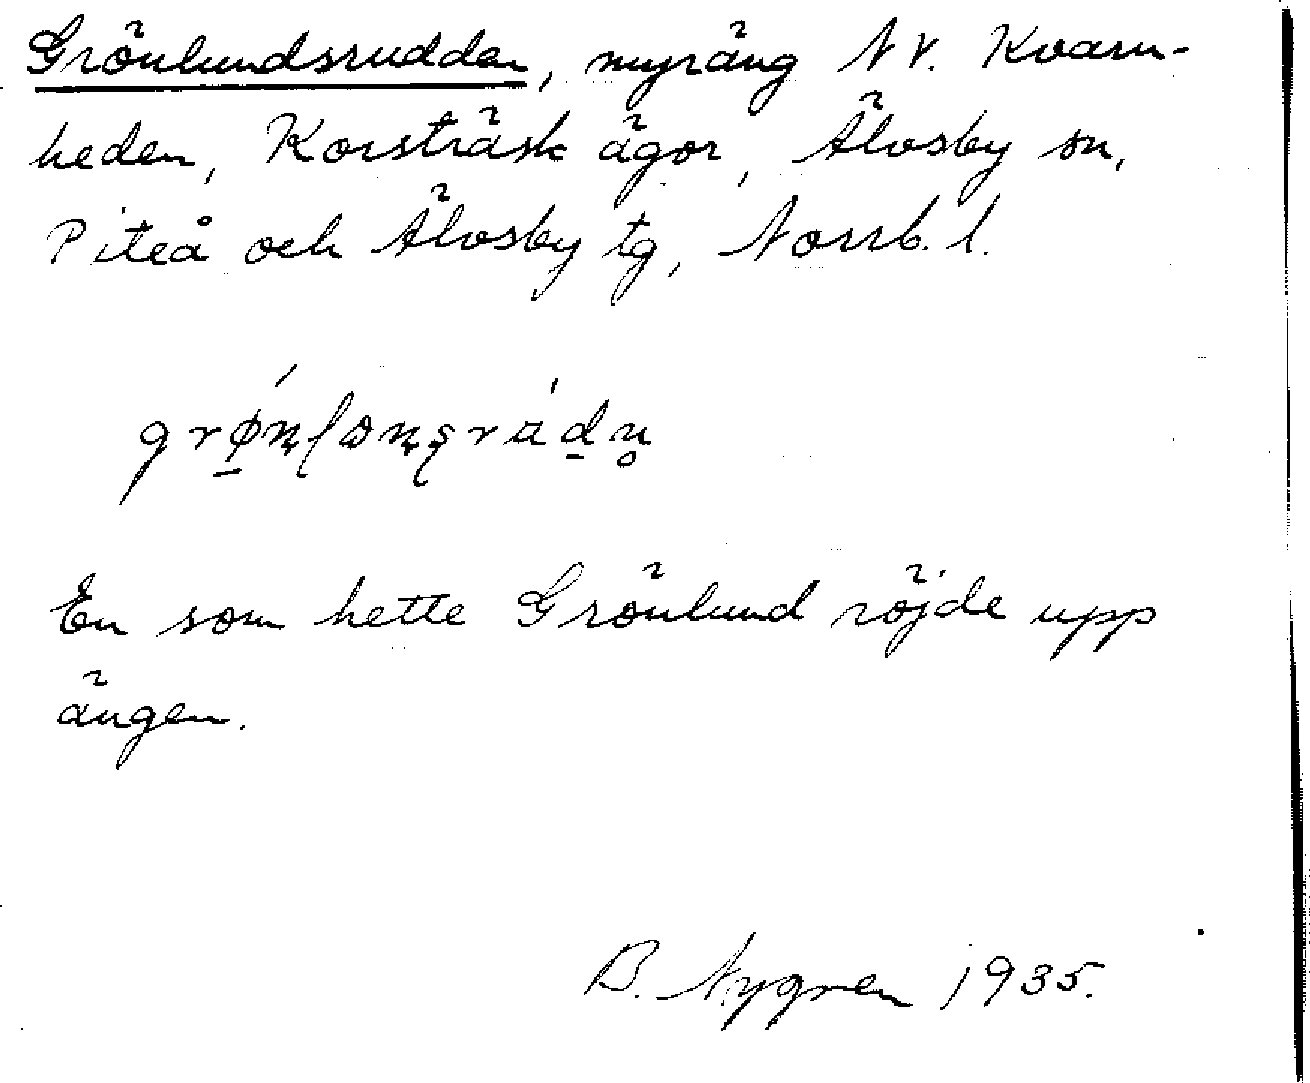 Grönlundsrudden, myräng NV. Kvarn-
heden, Korsträsk ägor, Älvsby sn,
Piteå och Älvsby tg, Norrb. l.
En som hette Grönlund röjde upp
ängen.
B. Nygren 1935.